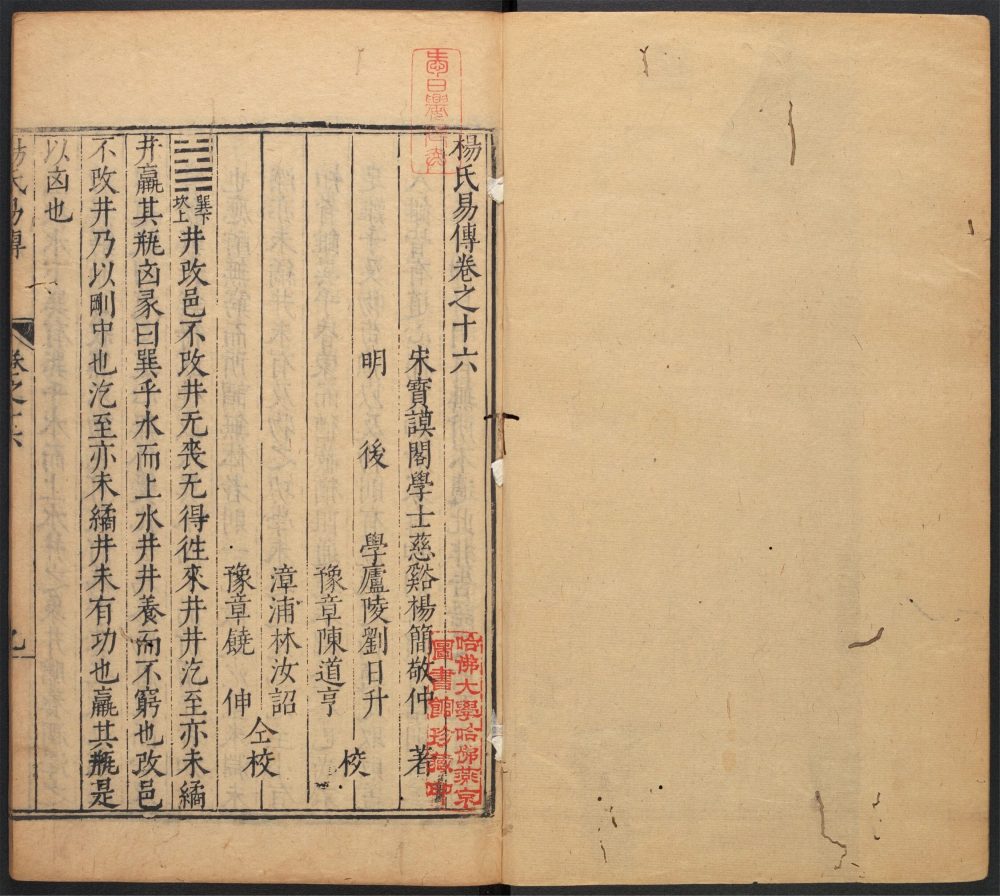 楊氏易傳卷之十六
宋寶謨閣學士慈谿楊簡敬仲 著
明 後 學廬陵劉日升
豫章陳道亨 校
漳浦林汝詔
豫章饒 伸 仝校
䷯巽下坎上井改邑不改井无丧无得徃來井井汔至亦未繘
井羸其瓶凶彖曰巽乎水而上水井井養而不窮也改邑
不改井乃以剛中也汔至亦未繘井未有功也羸其瓶是
以凶也
楊氏易傳 卷之十六 九
哈佛大學哈佛燕京
圖書館珍藏印